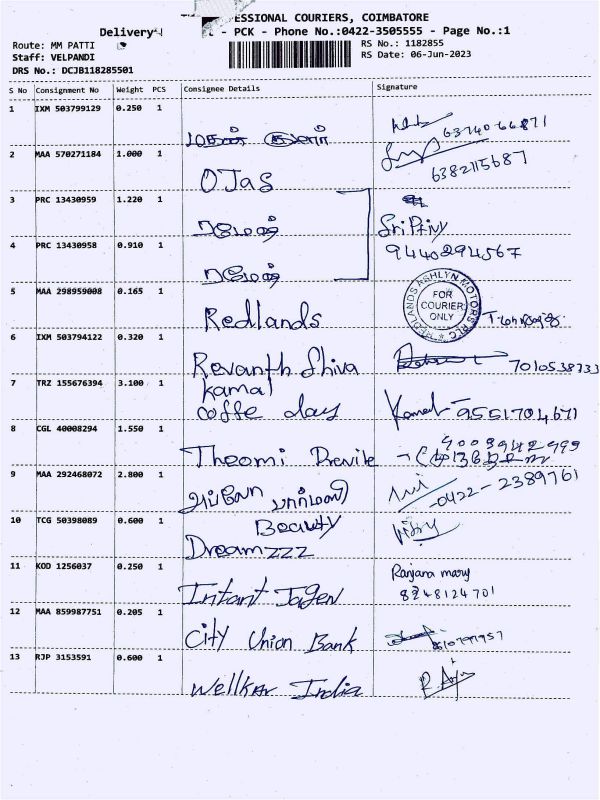 ESSIONAL COURIERS, COIMBATORE
Delivery - PCK - Phone No.:0422-3505555 - Page No.:1
Route: MM PATTI RS No.: 1182855
Staff: VELPANDI RS Date: 06-Jun-2023
DRS No.: DCJB118285501
S No Consignment No Weight PCS Consignee Details Signature
1 IXM 503799129 0.250 1
63740 66871
2 MAA 570271184 1.000 1
OJas 6382115687
3 PRC 13430959 1.220 1
ரமேஷ் Sri Priy
4 PRC 13430958 0.910 1 9440294567
ரமேஷ்
5 MAA 298959008 0.165 1
REDLANDS ASHLYN MOTORS PLC
FOR COURIER ONLY
Redlands
6 IXM 503794122 0.320 1
Revanth Shiva 7010538733
7 TRZ 155676394 3.100 1 kamal
coffe day Kamal 9551704671
8 CGL 40008294 1.550 1
Theomi
9 MAA 292468072 2.800 1
0422-2389761
10 TCG 50398089 0.600 1 Beauty
Dreamzzz
11 KOD 1256037 0.250 1 Ranjana mary
8248124701
12 MAA 859987751 0.205 1
City Union Bank
13 RJP 3153591 0.600 1
Wellkar India